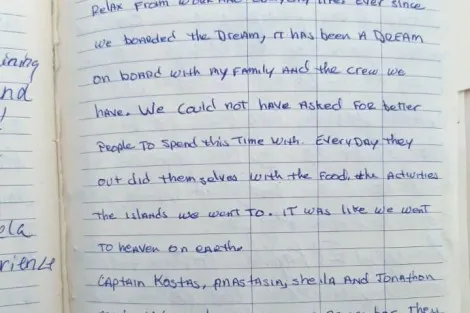 Relax from work and
ever since
we boarded the Dream, it has been a DREAM
on board with my family and the crew we
have. We could not have asked for better
people to spend this time with. Everyday they
out did themselves with the food, the activities
the islands we went to. It was like we went
to heaven on earth.
Captain Kostas, Anastasia, Sheila and Jonathon